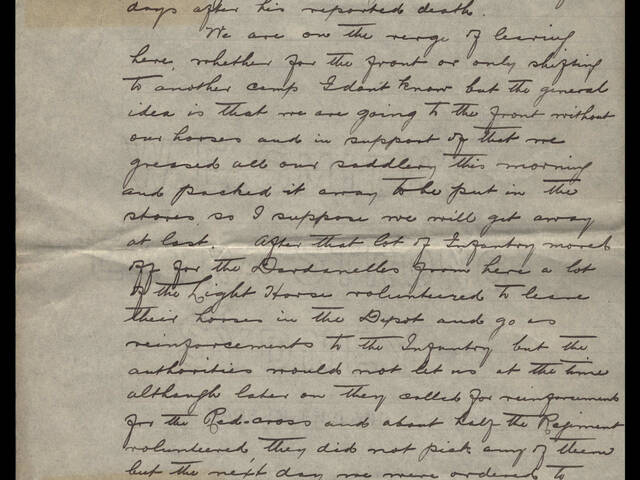 days after his reported death.
We are on the verge of leaving
here, whether for the front or only shifting
to another camp I dont know but the general
idea is that we are going to the front without
our horses and in support of that we
greased all our saddlery this morning
and packed it away to be put in the
stores so I suppose we will get away
at last. After that lot of Infantry moved
off for the Dardanelles from here a lot
of the Light Horse volunteered to leave
their horses in the Depot and go as
reinforcements to the Infantry but the
authorities would not let us at the time
although later on they called for reinforcements
for the Red-cross and about half the Regiment
volunteered, they did not pick any of them
but the next day we were ordered to